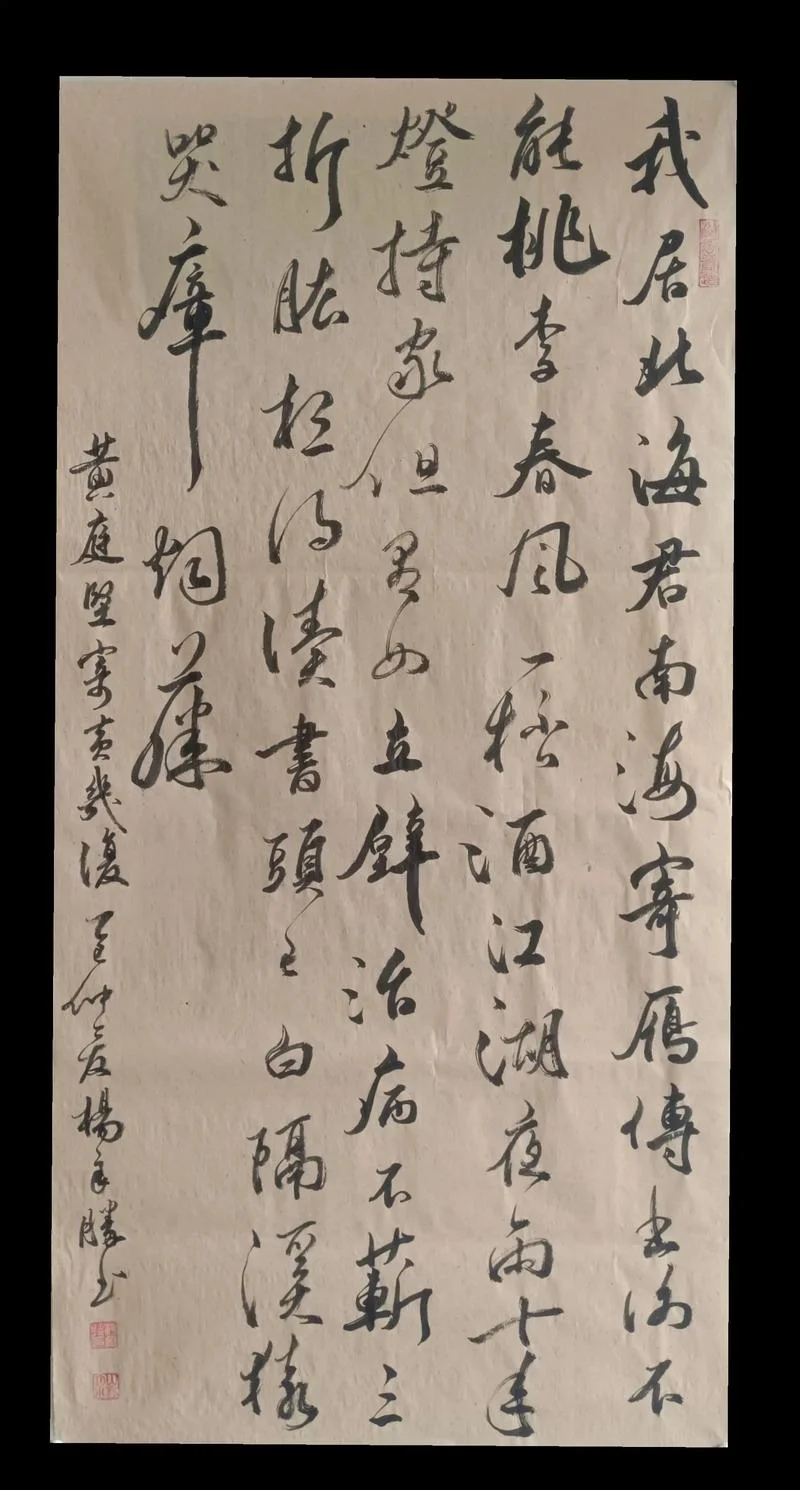 我居北海君南海寄雁傳书謝不
能桃李春風一杯酒江湖夜雨十年
燈持家但有四立壁治病不蘄三
折肱想得讀書頭已白隔溪猿
哭瘴烟藤
黃庭堅寄黃幾復 仲夏楊 勝书